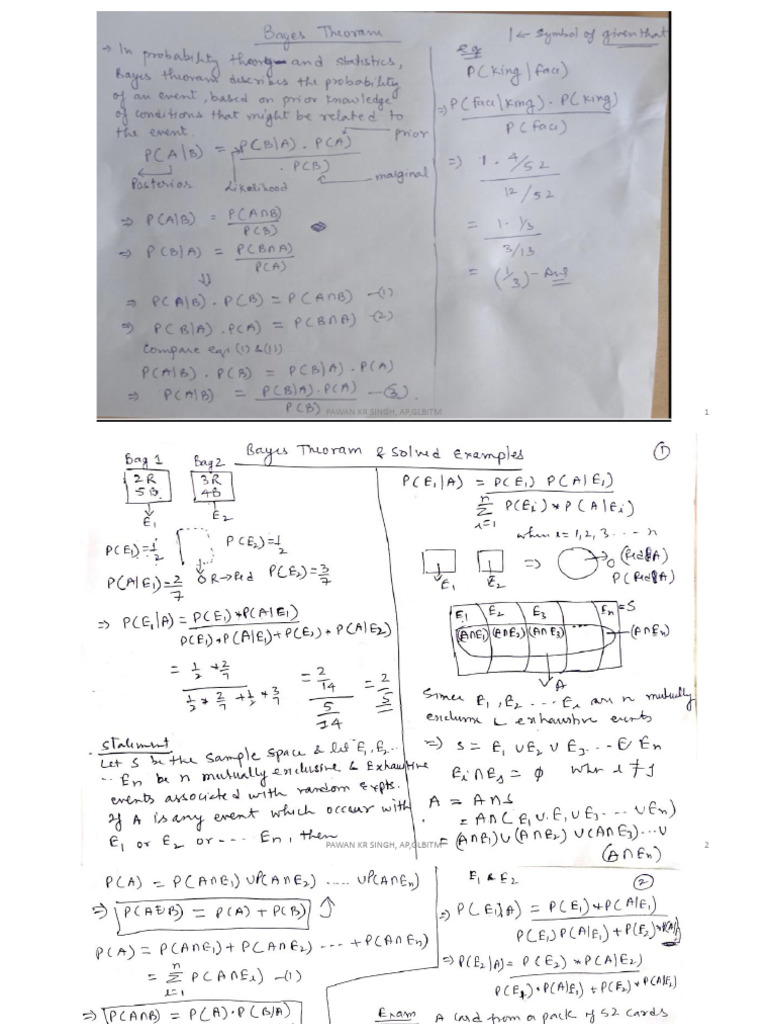 Bayes Theoram
→ In probability theory and statistics,
Bayes theoram describes the probability
of an event, based on prior knowledge
of conditions that might be related to
the event.
prior
P(A|B) = P(B|A) . P(A)
. P(B)
Posterior
Likelihood
marginal
⇒ P(A|B) = P(A∩B)
P(B)
⇒ P(B|A) = P(B∩A)
P(A)
⇓
⇒ P(A|B) . P(B) = P(A∩B) —(1)
⇒ P(B|A) . P(A) = P(B∩A) —(2)
Compare eqn (1) & (11)
P(A|B) . P(B) = P(B|A) . P(A)
⇒ P(A|B) = P(B|A) . P(A) —(3).
P(B)
| ← Symbol of given that
eg
P(King|face)
⇒ P(face|King) . P(King)
P(face)
⇒ 1 . 4/52
12/52
= 1 . 1/3
3/13
= (1/3) - Ans
PAWAN KR SINGH, AP,GLBITM
1
Bayes Theoram & Solved Examples
①
Bag 1
Bag2
2R
5B
3R
4B
E1
E2
P(E1)=1/2
P(E2)=1/2
P(A|E1)=2/7
R→Red
P(E2)=3/7
⇒ P(E1|A) = P(E1)*P(A|E1)
P(E1)*P(A|E1)+P(E2)*P(A|E2)
= 1/2 * 2/7
1/2 * 2/7 + 1/2 * 3/7
= 2/14
5/14
= 2/5
Statement
Let S be the sample space & let E1, E2..
.. En be n mutually exclusive & Exhaustive
events associated with random Expts.
If A is any event which occur with
E1 or E2 or --- En, then
P(E1|A) = P(E1) P(A|E1)
n
Σ P(Ei)*P(A|Ei)
i=1
when i=1,2,3 --- n
⇒
(Red|A)
P(Red|A)
E1
E2
E1 E2 E3 En =S
(A∩E1) (A∩E2) (A∩E3) ... (A∩En)
A
Since E1, E2 ... Ei are n mutually
exclusive & exhaustive events
⇒ S = E1 ∪ E2 ∪ E3 ... ∪ En
Ei∩Ej = ϕ when i ≠ j
A = A∩S
= A∩( E1 ∪ E1 ∪ E3 --- ∪En)
= (A∩E1)∪(A∩E2) ∪(A∩E3)...∪
(A∩En)
PAWAN KR SINGH, AP,GLBITM
2
P(A) = P(A∩E1) ∪P(A∩E2) ..... ∪P(A∩En)
⇒ P(A∪B) = P(A) + P(B)
P(A) = P(A∩E1) + P(A∩E2) --- +P(A∩En)
n
= Σ P(A∩Ei) —(1)
i=1
⇒ P(A∩B) = P(A).P(B|A)
E1 & E2
②
⇒ P(E1|A) = P(E1)*P(A|E1)
P(E1)P(A|E1)+P(E2)*P(A|
⇒ P(E2|A) = P(E2) *P(A|E2)
P(E1)*P(A|E1) + P(E2)*P(A|E2)
Exam A card from a pack of 52 cards